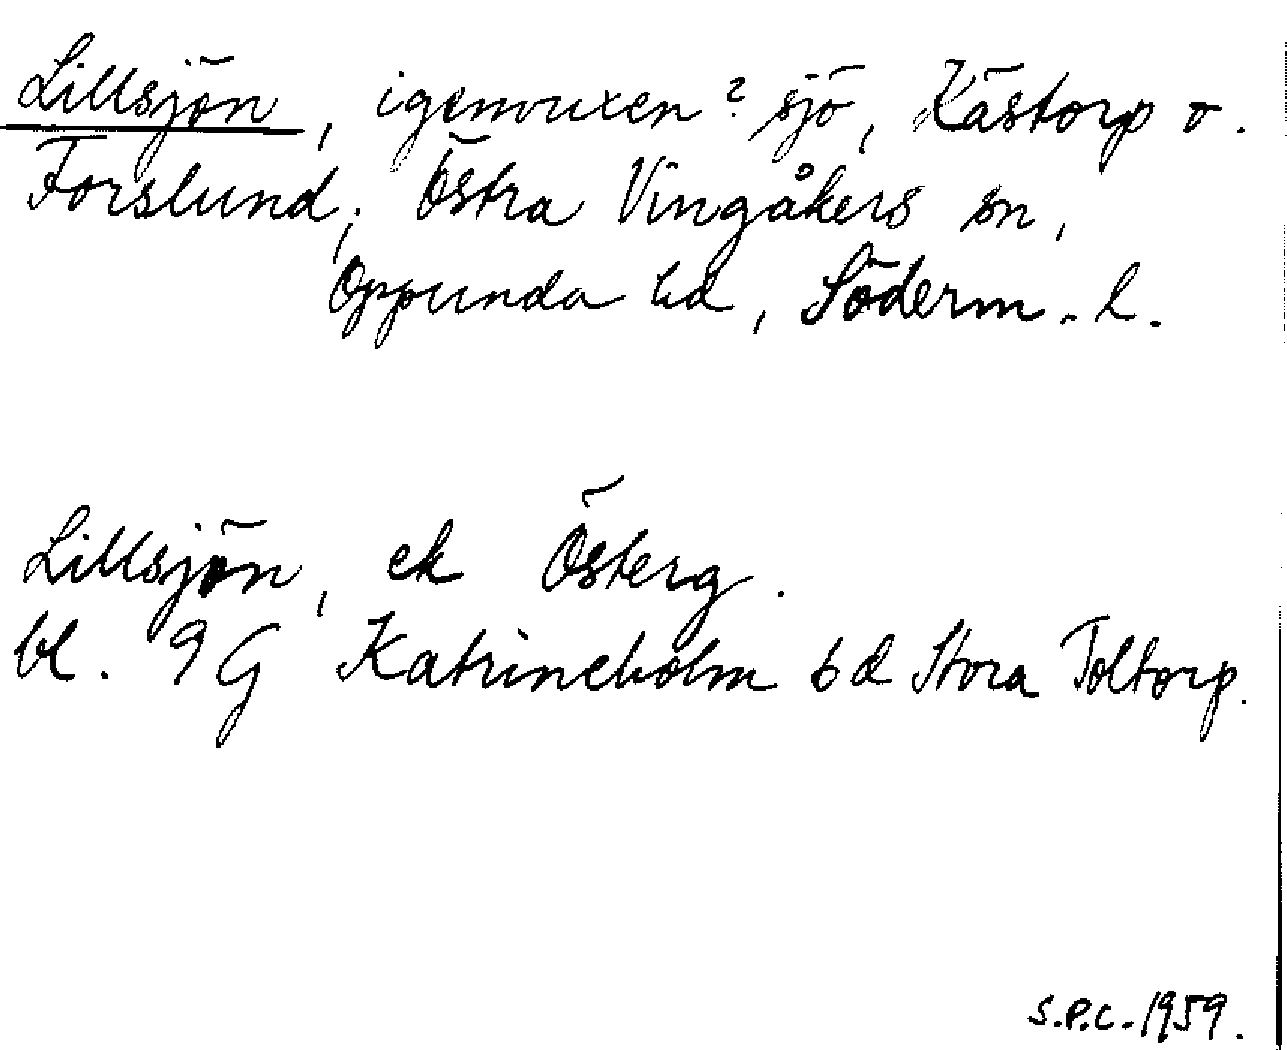 Lillsjön, igenvuxen? sjö, Kästorp o.
Forslund, Östra Vingåkers sn,
Oppunda hd, Söderm. l.
Lillsjön, ek Österg.
bl. 9G Katrineholm 6d Stora Toltorp.
S.P.C. 1959.